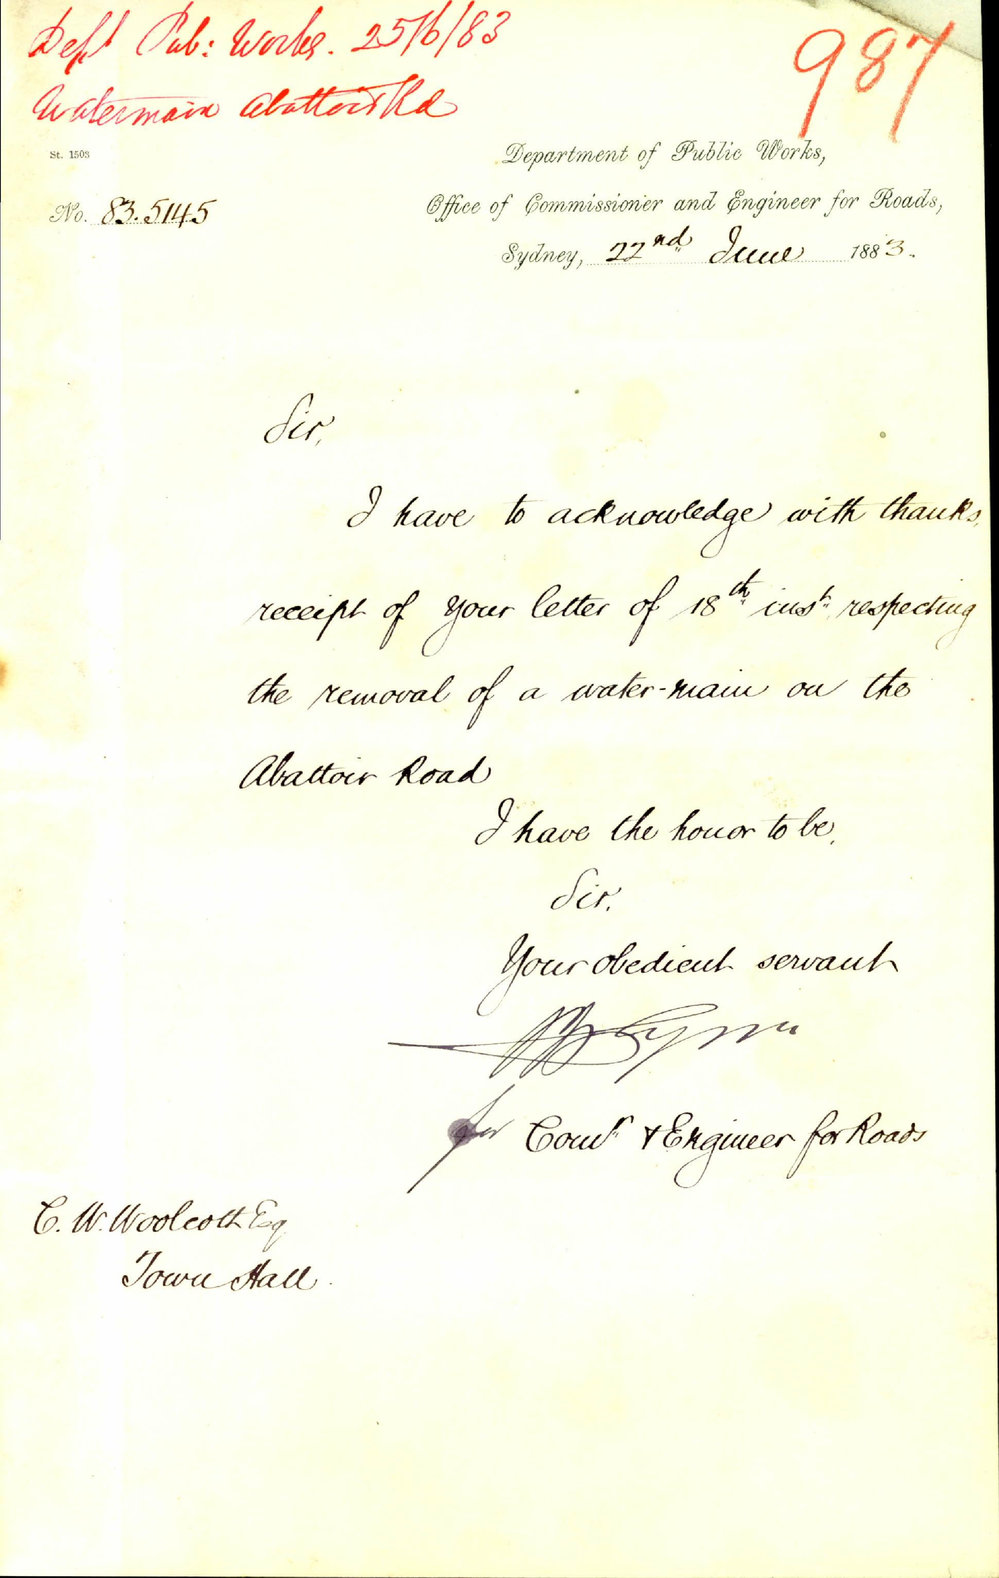 Dept Pub: Works. 25/6/83
987
Watermain Abattoir Rd
St. 1503
Department of Public Works,
No. 83.5145
Office of Commissioner and Engineer for Roads,
Sydney, 22nd June 1883.
Sir,
I have to acknowledge with thanks,
receipt of your letter of 18th inst. respecting
the removal of a water-main on the
Abattoir Road
I have the honor to be,
Sir,
Your obedient servant
for Comr & Engineer for Roads
C. W. Woolcott Esq
Town Hall.